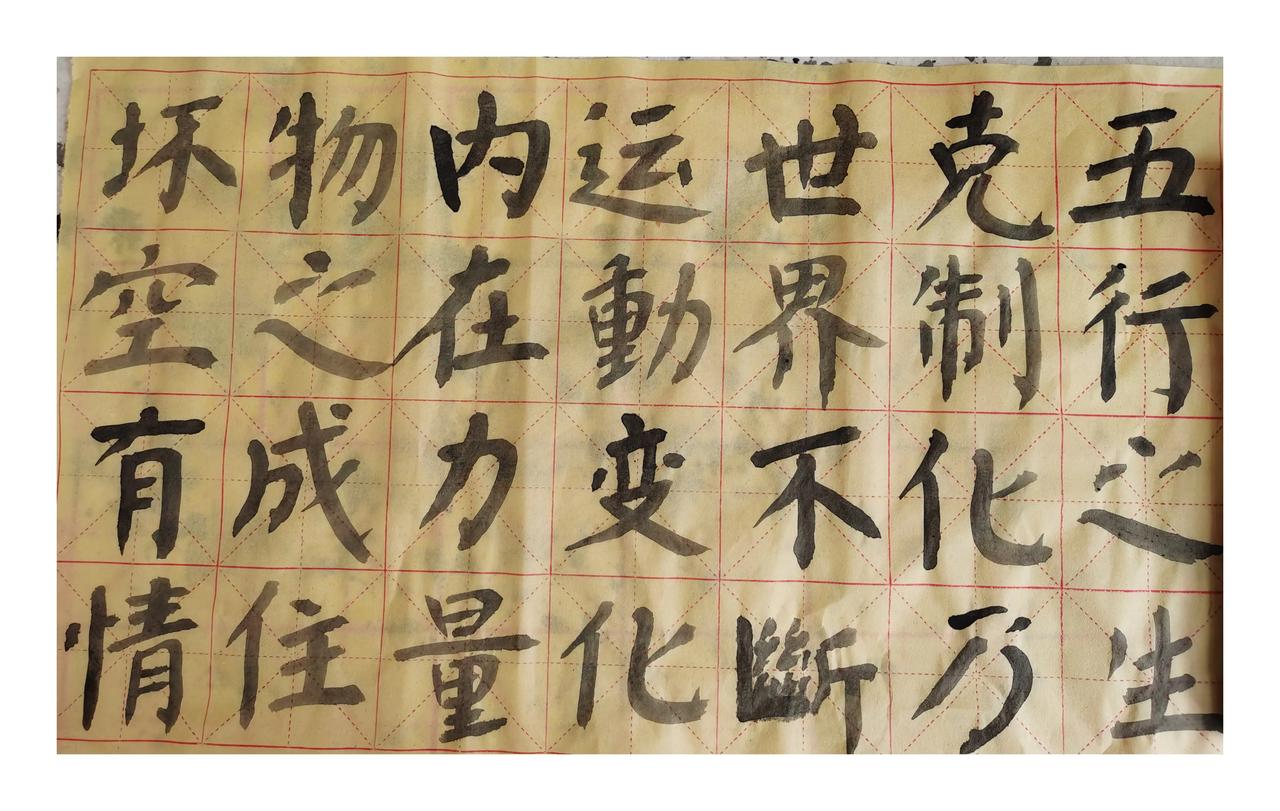 五行之生
克制化万
世界不斷
运動变化
内在力量
物之成住
坏空有情